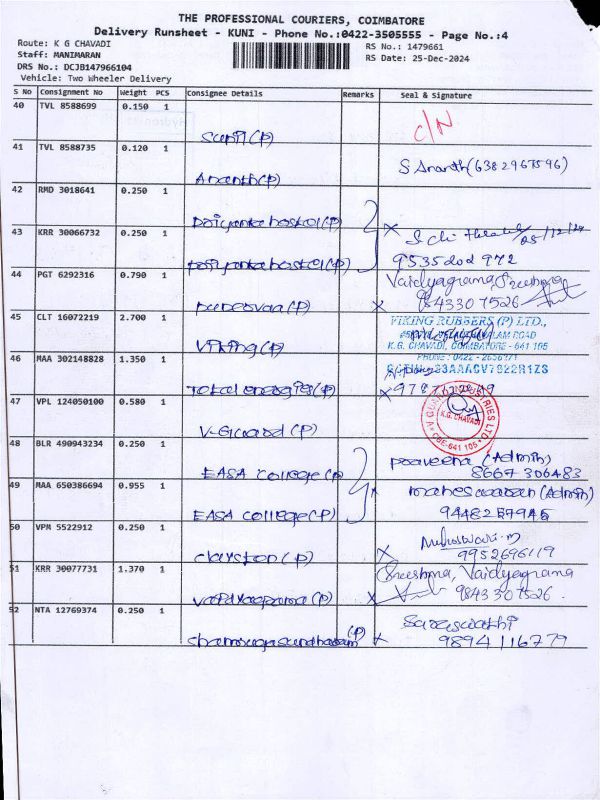 THE PROFESSIONAL COURIERS, COIMBATORE
Delivery Runsheet - KUNI - Phone No.:0422-3505555 - Page No.:4
Route: K G CHAVADI
RS No.: 1479661
Staff: MANIMARAN
RS Date: 25-Dec-2024
DRS No.: DCJB147966104
Vehicle: Two Wheeler Delivery
S No Consignment No Weight PCS Consignee Details Remarks Seal & Signature
40 TVL 8588699 0.150 1
Sunil(P) C/N
41 TVL 8588735 0.120 1
Ananth(P) S Ananth(6382967596)
42 RMD 3018641 0.250 1
Priyanka hostel(P)
43 KRR 30066732 0.250 1
25/12/24
Priyanka hostel(P) 9535202972
44 PGT 6292316 0.790 1
Vaidyagrama, Sreeshma
(P) x 9843307526
45 CLT 16072219 2.700 1
VIKING RUBBERS (P) LTD.,
Viking(P) K.G. CHAVADI, COIMBATORE - 641 105
46 MAA 302148828 1.350 1
Total energies(P)
47 VPL 124050100 0.580 1
K.G. CHAVADI
V-Guard (P)
48 BLR 490943234 0.250 1
Praveena (Admin)
EASA College(P) 8667306483
49 MAA 650386694 0.955 1
Maheswaran (Admin)
EASA College(P) 9448257945
50 VPM 5522912 0.250 1
Maheswari.M
(P) x 9952696119
51 KRR 30077731 1.370 1
Sreeshma, Vaidyagrama
Vaidyagrama(P) x 9843307526.
52 NTA 12769374 0.250 1
Saraswathi
Shanmugasundharam (P) x 9894116779